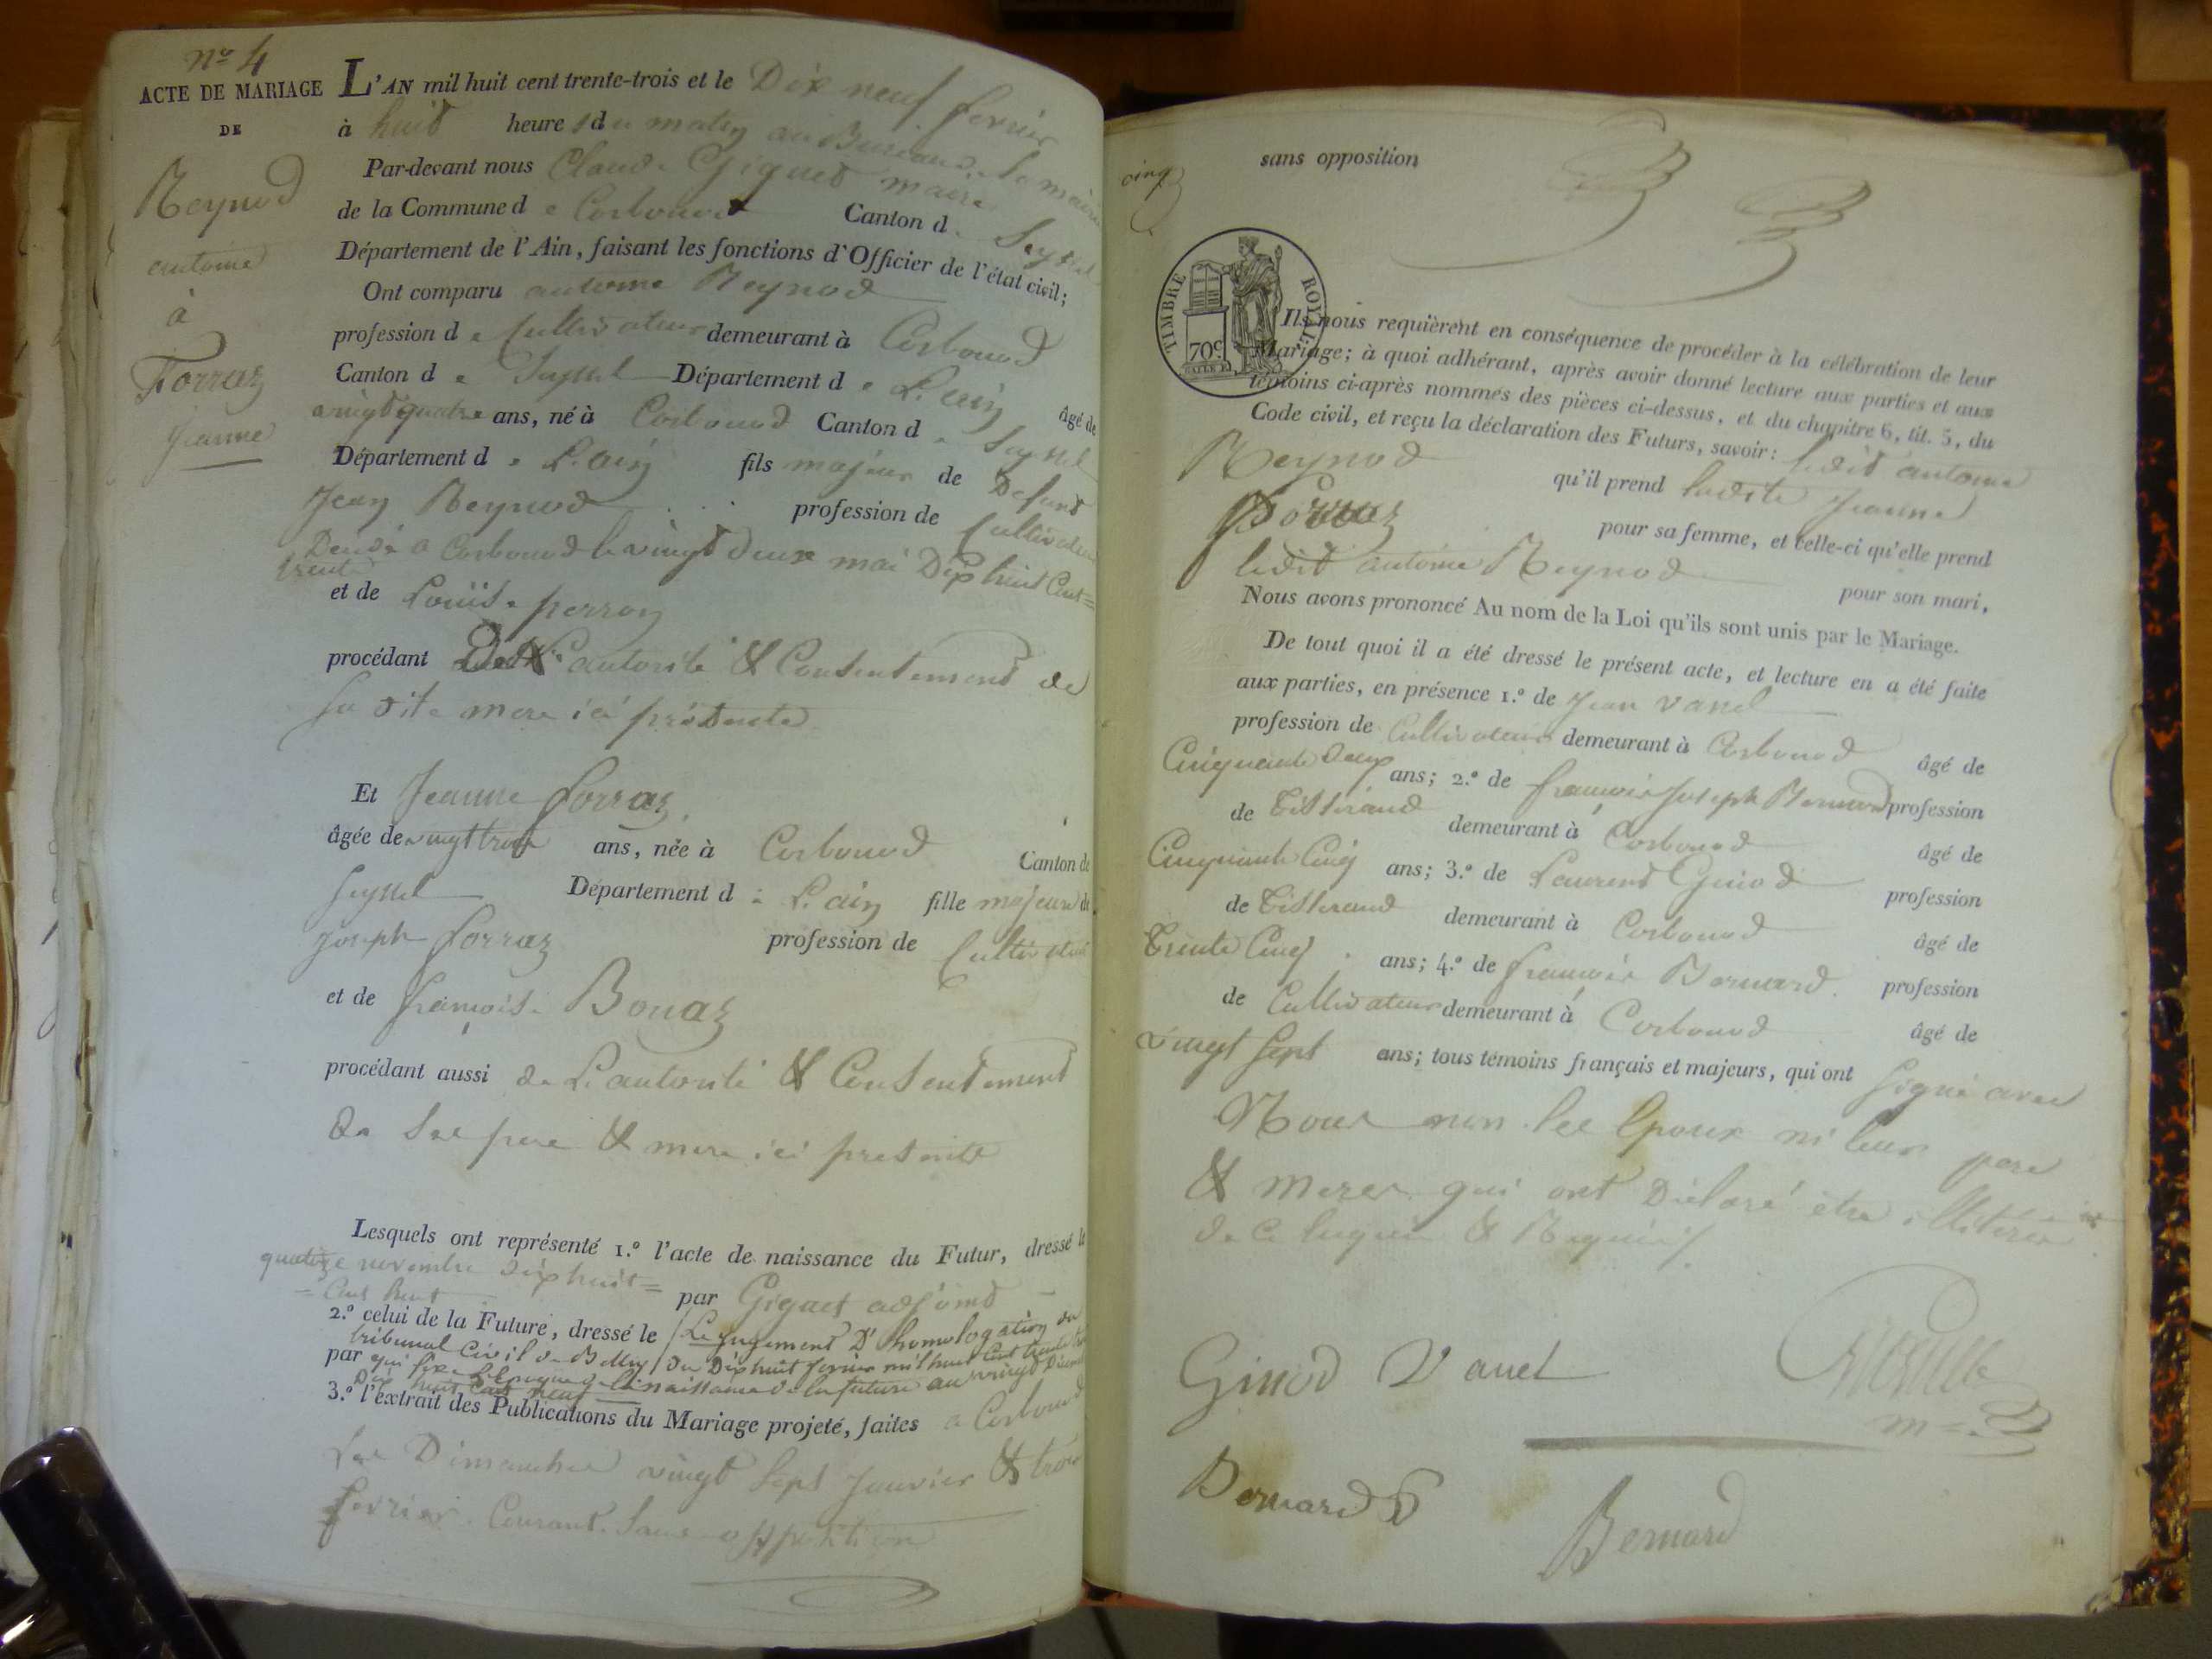 nº 4
ACTE DE MARIAGE
DE
Reynod
antoine
à
Forraz
Jeanne
L'AN mil huit cent trente-trois et le Dix neuf fevrier
à huit heures du matin au Bureau de la mairie
Par-devant nous Claude Giguet maire
de la Commune de Corbonod Canton de Seyssel
Département de l'Ain, faisant les fonctions d'Officier de l'état civil;
Ont comparu antoine Reynod
profession de Cultivateur demeurant à Corbonod
Canton de Seyssel Département de L'ain âgé de
vingt quatre ans, né à Corbonod Canton de Seyssel
Département de L'ain fils majeur de Defunt
Jean Reynod profession de Cultivateur
Décédé a Corbonod le vingt deux mai Dix huit Cent =
trente
et de Louise perron
procédant De L'autorité & Consentement de
sa dite mere ici présente
Et Jeanne forraz
âgée de vingt trois ans, née à Corbonod Canton de
Seyssel Département de L'ain fille majeure de
Joseph forraz profession de Cultivateur
et de françoise Bouaz
procédant aussi de L'autorité & Consentement
De ses pere & mere ici presents
Lesquels ont représenté 1.º l'acte de naissance du Futur, dressé le
quatorze novembre dix huit =
= Cent huit par Giguet adjoint
2.º celui de la Future, dressé le / Le jugement D'homologation du
tribunal Civil de Belley / du Dix huit fevrier mil huit Cent trente trois
par qui fixe L'Epoque de la naissance de la future au vingt
Dix huit Cent neuf
3.º l'extrait des Publications du Mariage projeté, faites a Corbonod
Les Dimanches vingt sept Janvier & trois
fevrier Courant. Sans opposition
cinq
sans opposition
TIMBRE ROYAL
70c
Ils nous requièrent en conséquence de procéder à la célébration de leur
Mariage; à quoi adhérant, après avoir donné lecture aux parties et aux
témoins ci-après nommés des pièces ci-dessus, et du chapitre 6, tit. 5, du
Code civil, et reçu la déclaration des Futurs, savoir: ledit antoine
Reynod qu'il prend ladite Jeanne
Forraz pour sa femme, et celle-ci qu'elle prend
ledit antoine Reynod pour son mari,
Nous avons prononcé Au nom de la Loi qu'ils sont unis par le Mariage.
De tout quoi il a été dressé le présent acte, et lecture en a été faite
aux parties, en présence 1.º de Jean vanel
profession de Cultivateur demeurant à Corbonod âgé de
Cinquante Deux ans; 2.º de françois Joseph Bernard profession
de Tisserand demeurant à Corbonod âgé de
Cinquante Cinq ans; 3.º de Laurent Ginod profession
de Tisserand demeurant à Corbonod âgé de
Trente Cinq ans; 4.º de françois Bernard profession
de Cultivateur demeurant à Corbonod âgé de
vingt sept ans; tous témoins français et majeurs, qui ont signé avec
Nous non les Epoux ni leurs pere
& meres qui ont Déclaré être illitérés
de ce Enquis & Requis /.
Ginod Vanel
Bernard
Bernard